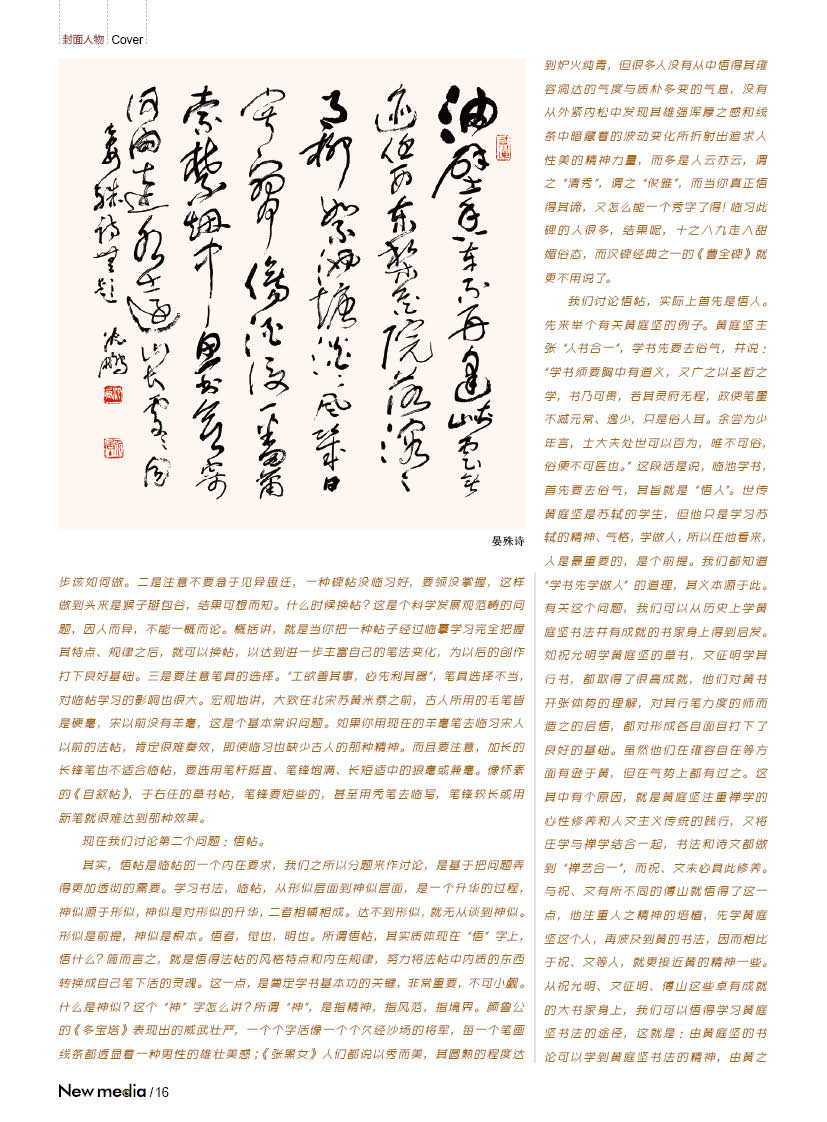 封面人物 Cover
油壁香車不再逢峽雲無
迹任西東梨花院落溶々
月柳絮池塘淡々風幾日
寂寥傷酒後一番蕭
索禁烟中魚書欲寄
何由達水遠山長處々同
晏殊詩無題 沈鹏
晏殊诗
步该如何做。二是注意不要急于见异思迁，一种碑帖没临习好，要领没掌握，这样
做到头来是猴子掰包谷，结果可想而知。什么时候换帖？这是个科学发展观范畴的问
题，因人而异，不能一概而论。概括讲，就是当你把一种帖子经过临摹学习完全把握
其特点、规律之后，就可以换帖，以达到进一步丰富自己的笔法变化，为以后的创作
打下良好基础。三是要注意笔具的选择。“工欲善其事，必先利其器”，笔具选择不当，
对临帖学习的影响也很大。宏观地讲，大致在北宋苏黄米蔡之前，古人所用的毛笔皆
是硬毫，宋以前没有羊毫，这是个基本常识问题。如果你用现在的羊毫笔去临习宋人
以前的法帖，肯定很难奏效，即使临习也缺少古人的那种精神。而且要注意，加长的
长锋笔也不适合临帖，要选用笔杆挺直、笔锋饱满、长短适中的狼毫或兼毫。像怀素
的《自叙帖》，于右任的草书帖，笔锋要短些的，甚至用秃笔去临写，笔锋较长或用
新笔就很难达到那种效果。
现在我们讨论第二个问题：悟帖。
其实，悟帖是临帖的一个内在要求，我们之所以分题来作讨论，是基于把问题弄
得更加透彻的需要。学习书法，临帖，从形似层面到神似层面，是一个升华的过程，
神似源于形似，神似是对形似的升华，二者相辅相成。达不到形似，就无从谈到神似。
形似是前提，神似是根本。悟者，觉也，明也。所谓悟帖，其实质体现在“悟”字上，
悟什么？简而言之，就是悟得法帖的风格特点和内在规律，努力将法帖中内质的东西
转换成自己笔下活的灵魂。这一点，是奠定学书基本功的关键，非常重要，不可小觑。
什么是神似？这个“神”字怎么讲？所谓“神”，是指精神，指风范，指境界。颜鲁公
的《多宝塔》表现出的威武壮严，一个个字活像一个个久经沙场的将军，每一个笔画
线条都透显着一种男性的雄壮美感；《张黑女》人们都说以秀而美，其圆熟的程度达
到炉火纯青，但很多人没有从中悟得其雍
容洞达的气度与质朴多变的气息，没有
从外紧内松中发现其雄强浑厚之感和线
条中暗藏着的波动变化所折射出追求人
性美的精神力量，而多是人云亦云，谓
之“清秀”，谓之“俊雅”，而当你真正悟
得其谛，又怎么能一个秀字了得！临习此
碑的人很多，结果呢，十之八九走入甜
媚俗态，而汉碑经典之一的《曹全碑》就
更不用说了。
我们讨论悟帖，实际上首先是悟人。
先来举个有关黄庭坚的例子。黄庭坚主
张“人书合一”，学书先要去俗气，并说：
“学书须要胸中有道义，又广之以圣哲之
学，书乃可贵，若其灵府无程，政使笔墨
不减元常、逸少，只是俗人耳。余尝为少
年言，士大夫处世可以百为，唯不可俗，
俗便不可医也。”这段话是说，临池学书，
首先要去俗气，其旨就是“悟人”。世传
黄庭坚是苏轼的学生，但他只是学习苏
轼的精神、气格，学做人，所以在他看来，
人是最重要的，是个前提。我们都知道
“学书先学做人”的道理，其义本源于此。
有关这个问题，我们可以从历史上学黄
庭坚书法并有成就的书家身上得到启发。
如祝允明学黄庭坚的草书，文征明学其
行书，都取得了很高成就，他们对黄书
开张体势的理解，对其行笔力度的师而
造之的启悟，都对形成各自面目打下了
良好的基础。虽然他们在雍容自在等方
面有逊于黄，但在气势上都有过之。这
其中有个原因，就是黄庭坚注重禅学的
心性修养和人文主义传统的践行，又将
庄学与禅学结合一起，书法和诗文都做
到“禅艺合一”，而祝、文未必具此修养。
与祝、文有所不同的傅山就悟得了这一
点，他注重人之精神的培植，先学黄庭
坚这个人，再波及到黄的书法，因而相比
于祝、文等人，就更接近黄的精神一些。
从祝允明、文征明、傅山这些卓有成就
的大书家身上，我们可以悟得学习黄庭
坚书法的途径，这就是：由黄庭坚的书
论可以学到黄庭坚书法的精神，由黄之
New media / 16